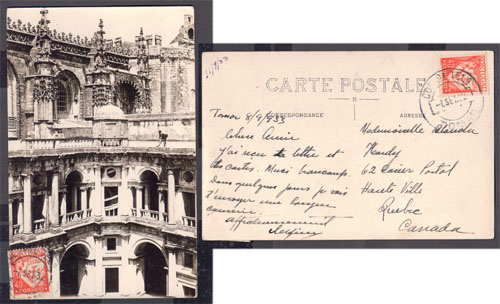 CARTE POSTALE
CORRESPONDANCE
ADRESSE
Tomar 8/9/933
Chère Amie
J'ai reçu la lettre et
les cartes. Merci beaucoup.
Dans quelques jours je vais
t'envoyer une longue
Affectueusement
Mademoiselle
Hardy
62 Casier Postal
Haute Ville
Québec
Canada
40
40